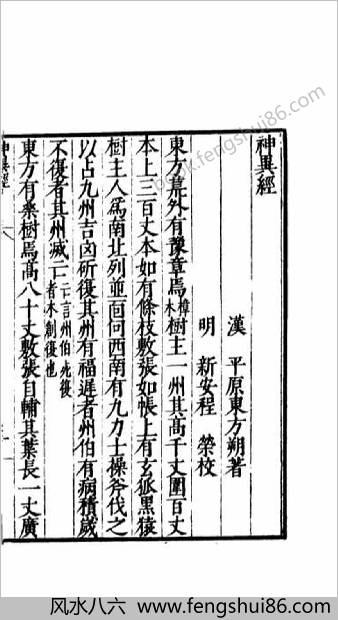 神異經
漢 平原東方朔著
明 新安程 榮校
東方荒外有豫章焉樟木樹主一州其高千丈圍百丈
本上三百丈本如有條枝敷張如帳上有玄狐黑猿
樹主一人爲南北列並面向西南有九力士操斧伐之
以占九州吉凶斫復其州有福遲者州伯有病積歲
不復者其州滅亡言州伯死復者木創復也
東方有桑樹焉高八十丈敷張自輔其葉長一丈廣
神異經
book.fengshui86.com
风水八六 www.fengshui86.com